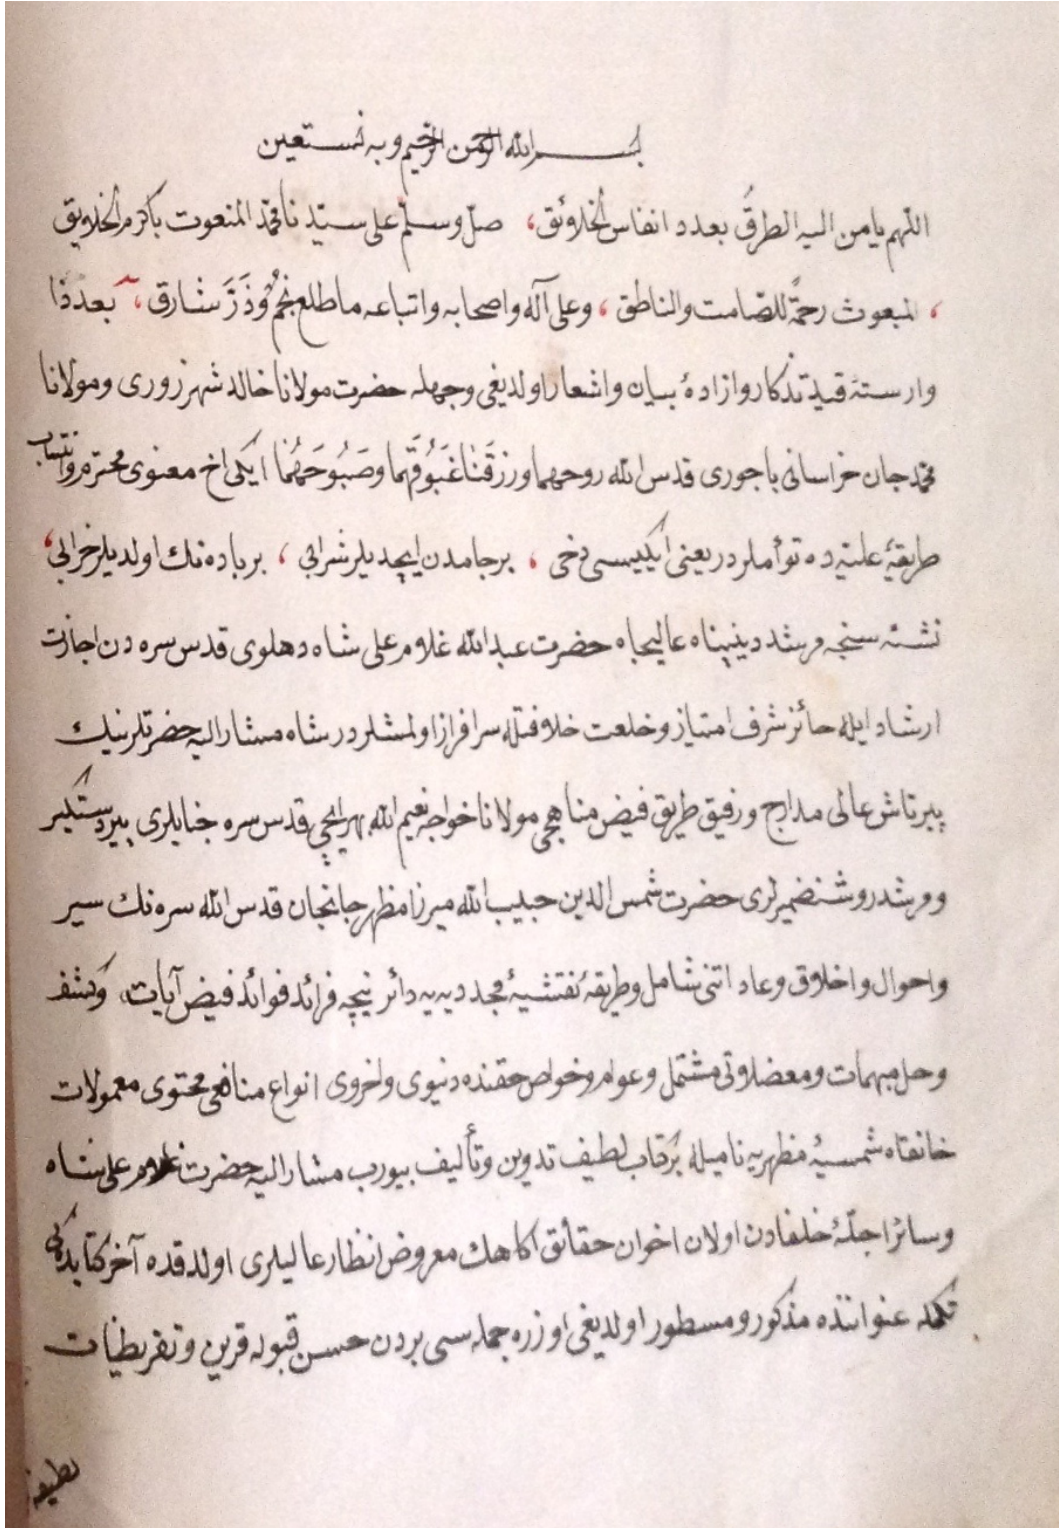 بسم الله الرحمن الرحيم وبه نستعين
اللهم يامن اليه الطرق بعدد انفاس الخلائق، صل وسلم على سيدنا محمد المنعوت باكرم الخلايق
، المبعوث رحمةً للصامت والناطق، وعلى آله واصحابه واتباعه ماطلع نجمٌ وذَرَّ شارق، بعدذا
وارستهٔ قيد تذكار وازادهٔ بيان واشعار اولديغى وجهله حضرت مولانا خالد شهرزورى ومولانا
محمدجان خراسانى باجورى قدس الله روحهما ورزقَنَا غَبُوقَهما وصَبُوحَهُمَا ايكى اخ معنوى محترم وانتساب
طريقهٔ عليه ده توأملردر يعنى ايكيسى دخى ، برجامدن ايچديلر شرابى ، برباده نك اولديلر خرابى ،
نشئه سنجه مرشد دينپناه عاليجاه حضرت عبدالله غلام على شاه دهلوى قدس سره دن اجازت
ارشاد ايله حائز شرف امتياز وخلعت خلافتله سرافراز اولمشلردر شاه مشاراليه حضرتلرنيك
پيرتاش عالى مدارج ورفيق طريق فيض مناهجى مولانا خواجه نعيم الله بهرايچى قدس سره جنابلرى پيردستكير
ومرشد روشنضميرلرى حضرت شمس الدين حبيب الله ميرزا مظهر جانجان قدس الله سره نك سير
واحوال واخلاق وعاداتنى شامل وطريقهٔ نقشيهٔ مجدديه يه دائر نيچه فرائد فوائد فيض آيات، وكشف
وحل مبهمات ومعضلاتى مشتمل وعوام وخواص حقنده دنيوى واخروى انواع منافعى محتوى معمولات
خانقاه شمسيهٔ مظهريه ناميله بركتاب لطيف تدوين وتأليف بيورب مشاراليه حضرت غلام على شاه
وسائر اجلهٔ خلفادن اولان اخوان حقائق اكاهك معروض انظار عاليلرى اولدقده آخر كتابده كى
تكمله عنواننده مذكور ومسطور اولديغى اوزره جمله سى بردن حسن قبوله قرين وتقريظات
لطيفه